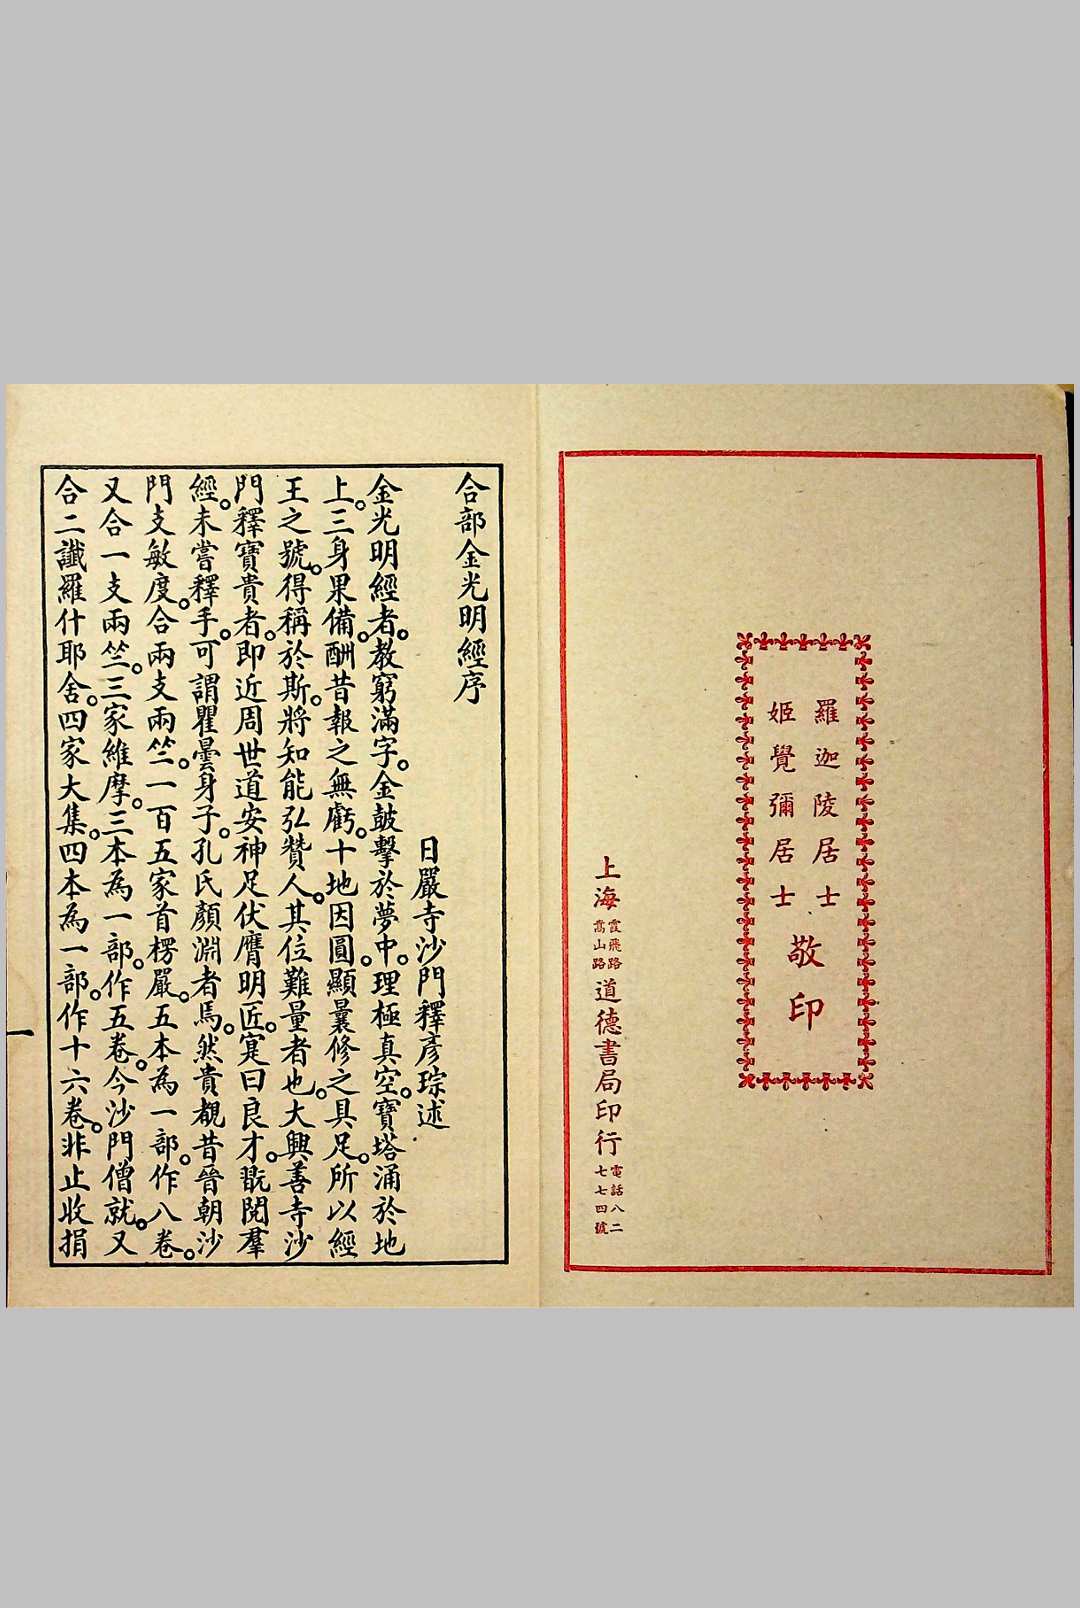 羅迦陵居士
姬覺彌居士
敬印
上海霞飛路嵩山路道德書局印行電話八二七七四號
合部金光明經序
日嚴寺沙門釋彥琮述
金光明經者。教窮滿字。金鼓擊於夢中。理極真空。寶塔涌於地
上。三身果備。酬昔報之無虧。十地因圓。顯曩修之具足。所以經
王之號。得稱於斯。將知能弘贊人。其位難量者也。大興善寺沙
門釋寶貴者。即近周世道安神足伏膺明匠。寔曰良才。翫閱羣
經。未嘗釋手。可謂瞿曇身子。孔氏顏淵者焉。然貴覩昔晉朝沙
門支敏度。合兩支兩竺。一百五家首楞嚴。五本為一部。作八卷。
又合一支兩竺。三家維摩。三本為一部。作五卷。今沙門僧就。又
合二讖羅什耶舍。四家大集。四本為一部。作十六卷。非止收捐
一